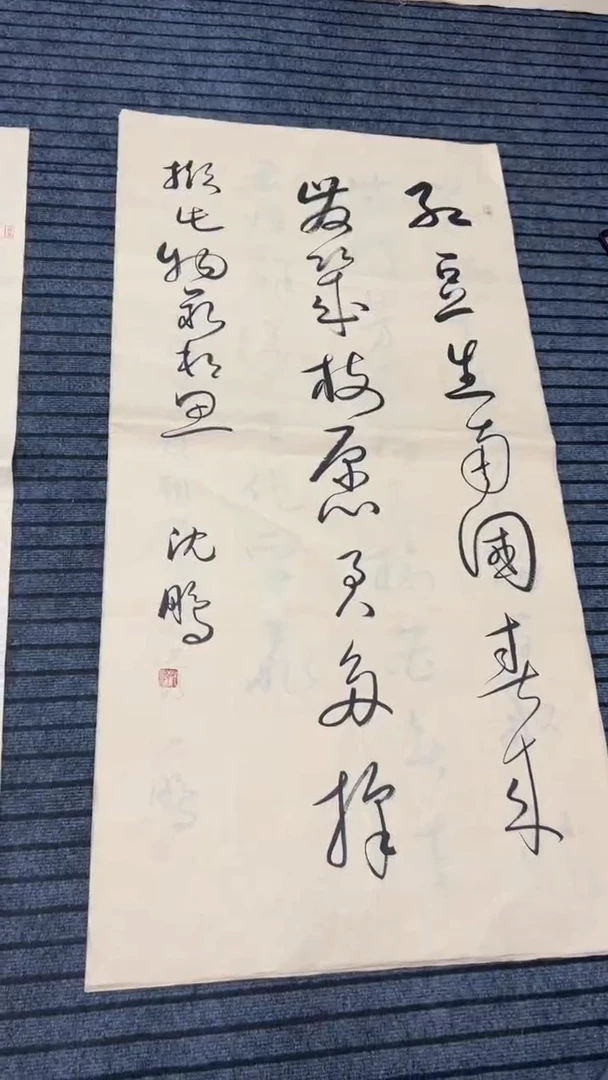 红豆生南國春来
發幾枝愿君多採
撷此物最相思
沈鹏